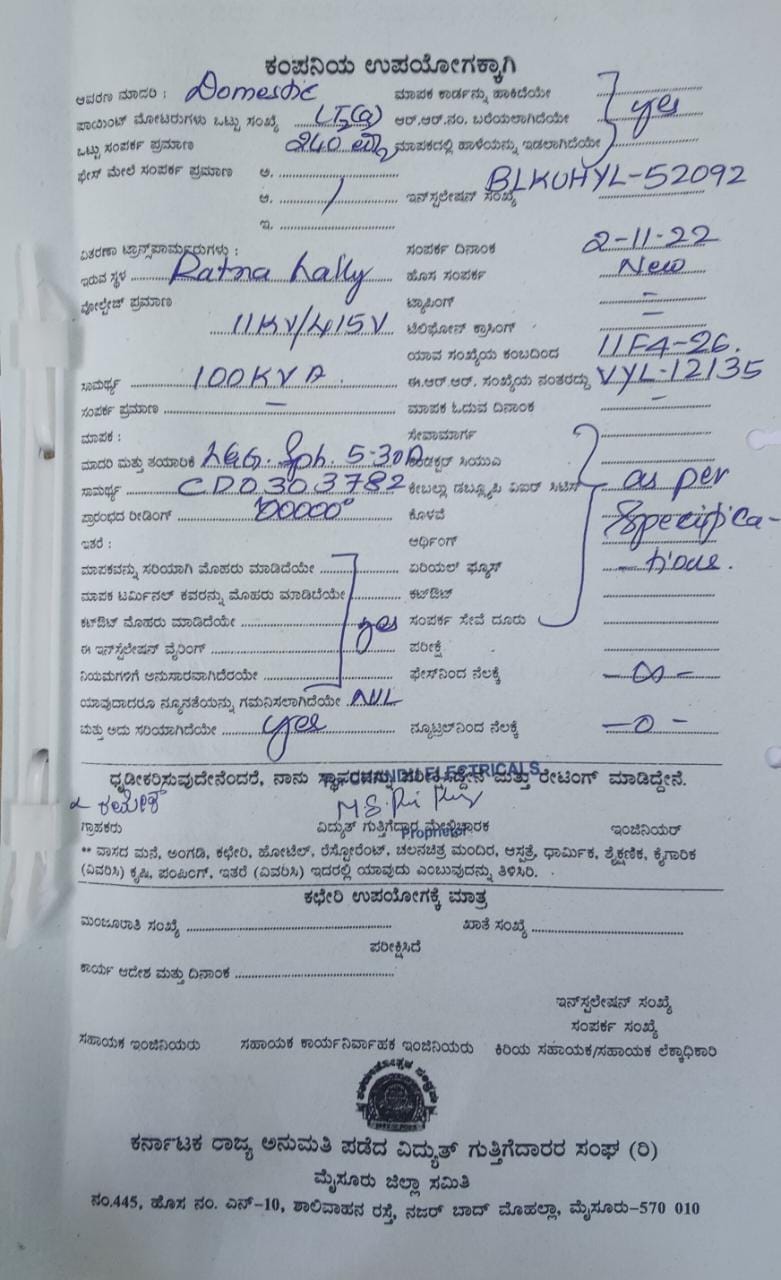 ಕಂಪನಿಯ ಉಪಯೋಗಕ್ಕಾಗಿ
ಆವರಣ ಮಾದರಿ : Domestic ಮಾಪಕ ಕಾರ್ಡನ್ನು ಹಾಕಿದೆಯೇ
ಪಾಯಿಂಟ್ ಮೋಟರುಗಳು ಒಟ್ಟು ಸಂಖ್ಯೆ LT2(a) ಆರ್.ಆರ್.ನಂ. ಬರೆಯಲಾಗಿದೆಯೇ yes
ಒಟ್ಟು ಸಂಪರ್ಕ ಪ್ರಮಾಣ 240 ಮಾಪಕದಲ್ಲಿ ಹಾಳೆಯನ್ನು ಇಡಲಾಗಿದೆಯೇ
ಫೇಸ್ ಮೇಲೆ ಸಂಪರ್ಕ ಪ್ರಮಾಣ ಅ.
ಆ. ಇನ್‌ಸ್ಟಲೇಷನ್ ಸಂಖ್ಯೆ BLKUHYL-52092
ಇ.
ವಿತರಣಾ ಟ್ರಾನ್ಸ್‌ಪಾರ್ಮರುಗಳು : ಸಂಪರ್ಕ ದಿನಾಂಕ 2-11-22
ಇರುವ ಸ್ಥಳ Ratna hally ಹೊಸ ಸಂಪರ್ಕ New
ವೋಲ್ಟೇಜ್ ಪ್ರಮಾಣ ಟ್ಯಾಪಿಂಗ್ –
11KV/415V ಟೆಲಿಫೋನ್ ಕ್ರಾಸಿಂಗ್ –
ಯಾವ ಸಂಖ್ಯೆಯ ಕಂಬದಿಂದ 11F4-26.
ಸಾಮರ್ಥ್ಯ 100KVA ಈ.ಆರ್.ಆರ್. ಸಂಖ್ಯೆಯ ನಂತರದ್ದು VYL-12135
ಸಂಪರ್ಕ ಪ್ರಮಾಣ – ಮಾಪಕ ಓದುವ ದಿನಾಂಕ –
ಮಾಪಕ : ಸೇವಾಮಾರ್ಗ
ಮಾದರಿ ಮತ್ತು ತಯಾರಿಕೆ L&G. Sph. 5-30A ಕಂಡಕ್ಟರ್ ಸಿಯುಎ
ಸಾಮರ್ಥ್ಯ CD0303782 ಕೇಬಲ್ಲು ಡಬ್ಲ್ಯೂಪಿ ವಿಐರ್ ಸಿಟಿಸ್ as per
ಪ್ರಾರಂಭದ ರೀಡಿಂಗ್ 00000° ಕೊಳವೆ Specifica-
ಇತರೆ : ಆರ್ಥಿಂಗ್
ಮಾಪಕವನ್ನು ಸರಿಯಾಗಿ ಮೊಹರು ಮಾಡಿದೆಯೇ ಏರಿಯಲ್ ಫ್ಯೂಸ್ – tions.
ಮಾಪಕ ಟರ್ಮಿನಲ್ ಕವರನ್ನು ಮೊಹರು ಮಾಡಿಬೆಯೇ ಕಟ್‌ಔಟ್
ಕಟ್‌ಔಟ್ ಮೊಹರು ಮಾಡಿದೆಯೇ yes ಸಂಪರ್ಕ ಸೇವೆ ದೂರು
ಈ ಇನ್‌ಸ್ಟಲೇಷನ್ ವೈರಿಂಗ್ ಪರೀಕ್ಷೆ
ನಿಯಮಗಳಿಗೆ ಅನುಸಾರವಾಗಿದೆರಯೇ ಫೇಸ್‌ನಿಂದ ನೆಲಕ್ಕೆ – ∞ –
ಯಾವುದಾದರೂ ನ್ಯೂನತೆಯನ್ನು ಗಮನಿಸಲಾಗಿದೆಯೇ NIL
ಮತ್ತು ಅದು ಸರಿಯಾಗಿದೆಯೇ yes ನ್ಯೂಟ್ರಲ್‌ನಿಂದ ನೆಲಕ್ಕೆ – 0 –
ELECTRICALS
ಧೃಢೀಕರಿಸುವುದೇನೆಂದರೆ, ನಾನು ಸ್ಥಾವರವನ್ನು ಪರೀಕ್ಷಿಸಿದ್ದೇನೆ ಮತ್ತು ರೇಟಿಂಗ್ ಮಾಡಿದ್ದೇನೆ.
ಗ್ರಾಹಕರು ವಿದ್ಯುತ್ ಗುತ್ತಿಗೆದಾರ ಮೇಲ್ವಿಚಾರಕ ಇಂಜಿನಿಯರ್
Proprietor
** ವಾಸದ ಮನೆ, ಅಂಗಡಿ, ಕಛೇರಿ, ಹೋಟೆಲ್, ರೆಸ್ಟೋರೆಂಟ್, ಚಲನಚಿತ್ರ ಮಂದಿರ, ಆಸ್ಪತ್ರೆ, ಧಾರ್ಮಿಕ, ಶೈಕ್ಷಣಿಕ, ಕೈಗಾರಿಕ
(ವಿವರಿಸಿ) ಕೃಷಿ, ಪಂಪಿಂಗ್, ಇತರೆ (ವಿವರಿಸಿ) ಇದರಲ್ಲಿ ಯಾವುದು ಎಂಬುವುದನ್ನು ತಿಳಿಸಿರಿ.
ಕಛೇರಿ ಉಪಯೋಗಕ್ಕೆ ಮಾತ್ರ
ಮಂಜೂರಾತಿ ಸಂಖ್ಯೆ ಖಾತೆ ಸಂಖ್ಯೆ
ಪರೀಕ್ಷಿಸಿದೆ
ಕಾರ್ಯ ಆದೇಶ ಮತ್ತು ದಿನಾಂಕ
ಇನ್‌ಸ್ಟಲೇಷನ್ ಸಂಖ್ಯೆ
ಸಂಪರ್ಕ ಸಂಖ್ಯೆ
ಸಹಾಯಕ ಇಂಜಿನಿಯರು ಸಹಾಯಕ ಕಾರ್ಯನಿರ್ವಾಹಕ ಇಂಜಿನಿಯರು ಕಿರಿಯ ಸಹಾಯಕ/ಸಹಾಯಕ ಲೆಕ್ಕಾಧಿಕಾರಿ
ಕರ್ನಾಟಕ ರಾಜ್ಯ ಅನುಮತಿ ಪಡೆದ ವಿದ್ಯುತ್ ಗುತ್ತಿಗೆದಾರರ ಸಂಘ (ರಿ)
ಮೈಸೂರು ಜಿಲ್ಲಾ ಸಮಿತಿ
ನಂ.445, ಹೊಸ ನಂ. ಎನ್-10, ಶಾಲಿವಾಹನ ರಸ್ತೆ, ನಜರ್ ಬಾದ್ ಮೊಹಲ್ಲಾ, ಮೈಸೂರು-570 010